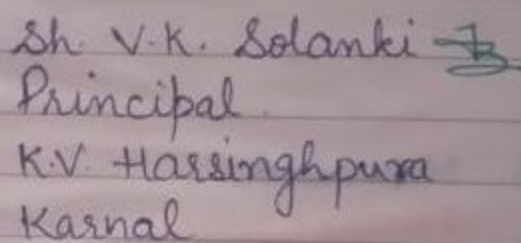 Sh. V.K. Solanki
Principal
K.V. Harsinghpura
Karnal